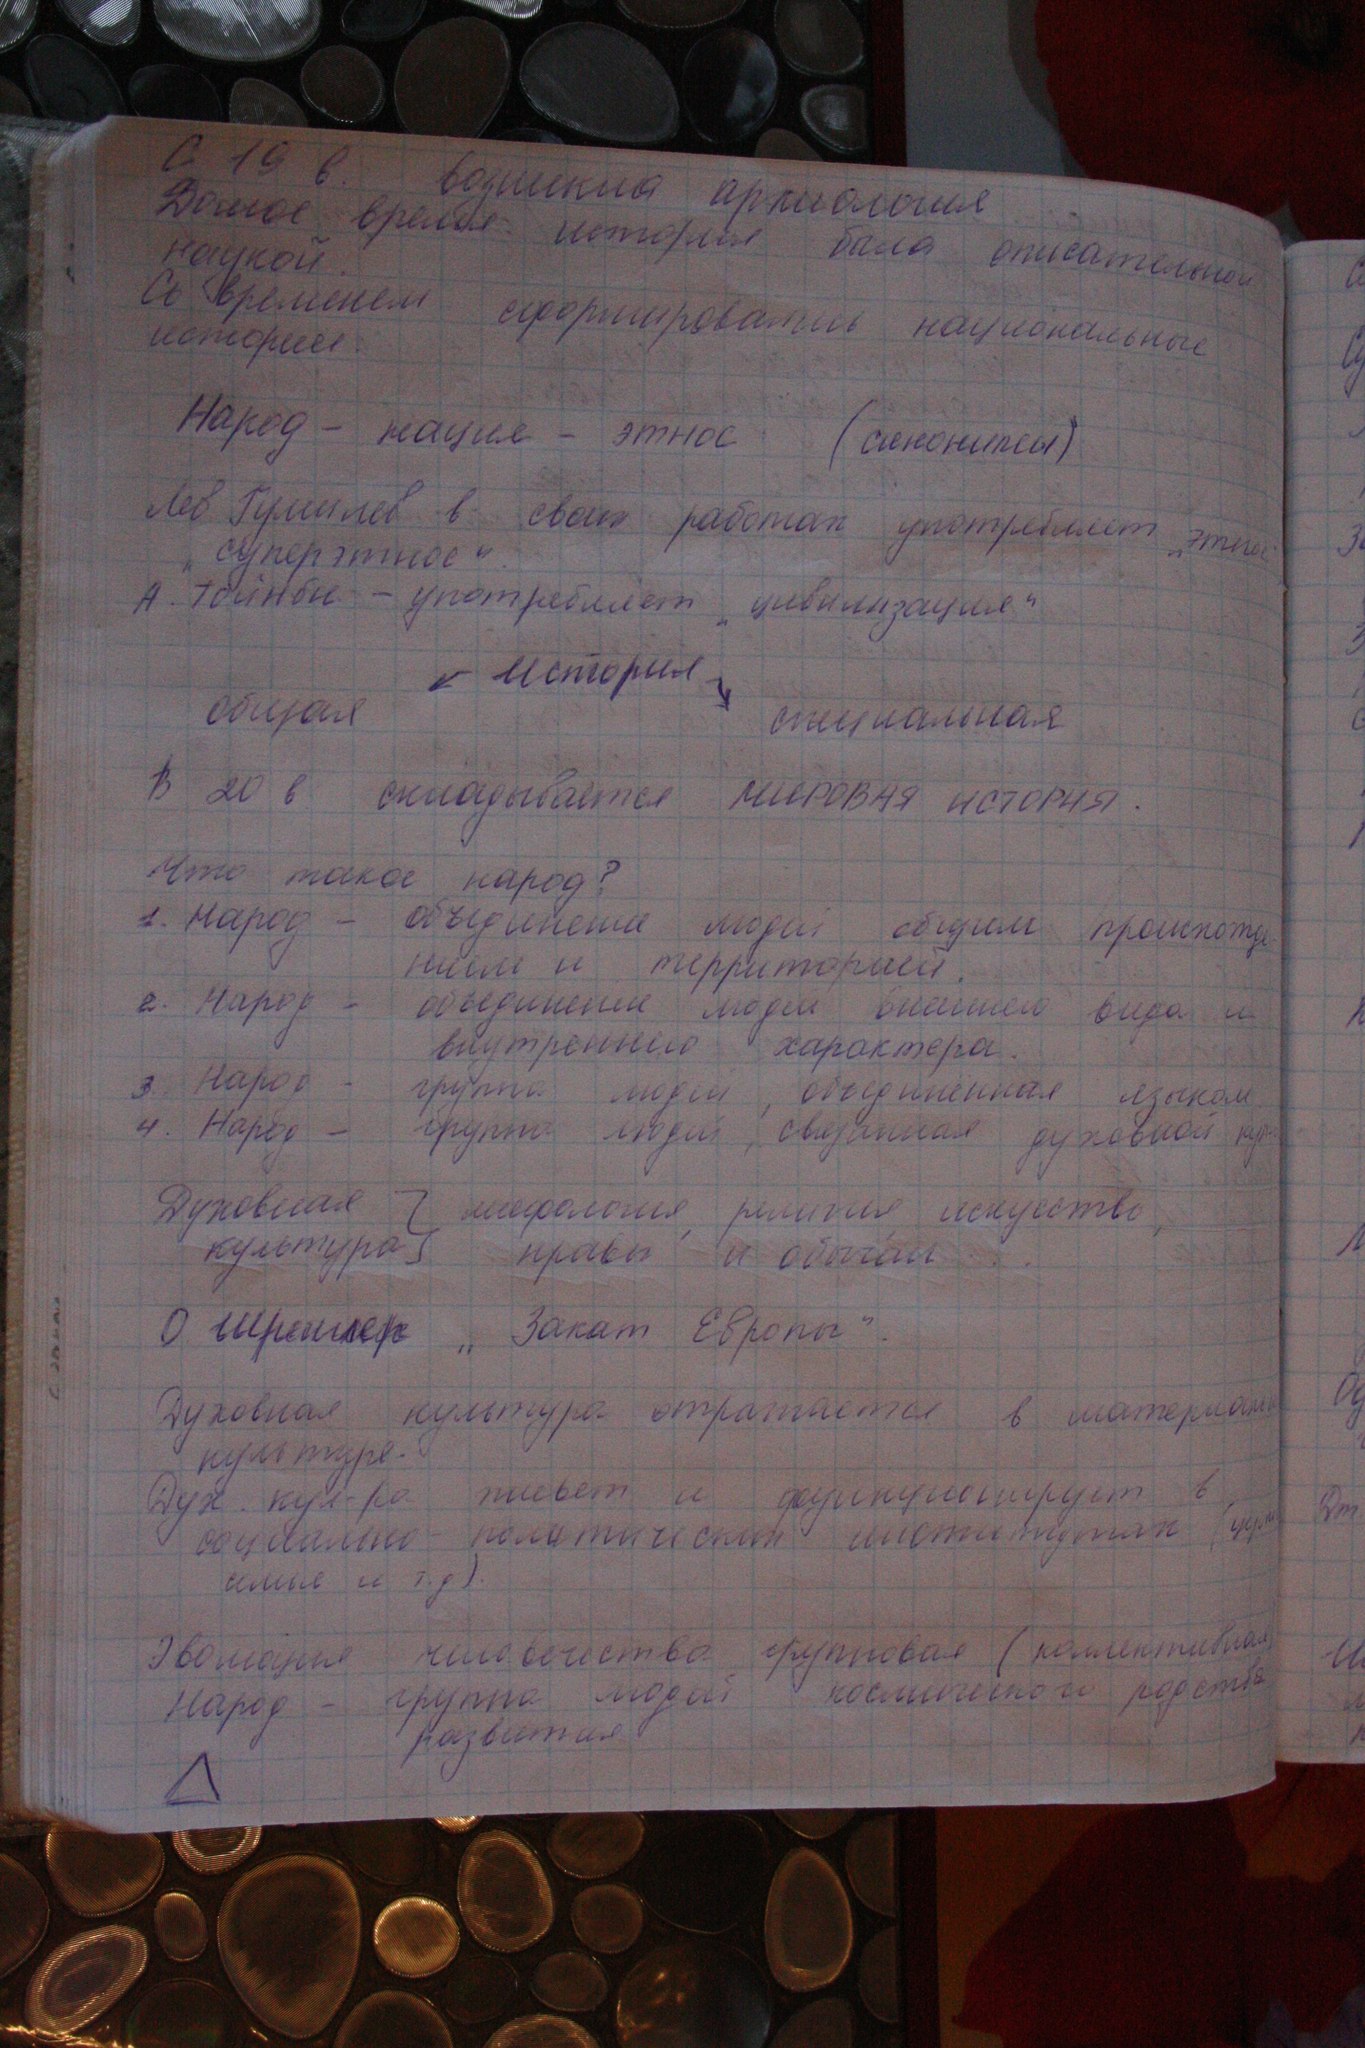 С 19 в. возникла археология
Долгое время история была описательной
наукой.
Со временем сформировались национальные
истории.
Народ - нация - этнос (синонимы)
Лев Гумилев в своих работах употребляет „этнос“
„суперэтнос“.
А. Тойнби - употребляет „цивилизация“
История
общая специальная
В 20 в складывается МИРОВАЯ ИСТОРИЯ.
Что такое народ?
1. Народ - объединение людей общим происхожде
нием и территорией.
2. Народ - объединение людей внешнего вида и
внутреннего характера.
3. Народ - группа людей, объединённая языком
4. Народ - группа людей, связанная духовной
Духовная } мифология, религия искусство,
культура } нравы и обычаи . .
О Шпенглер „Закат Европы“.
Духовная культура отражается в материальн
культуре.
Дух. кул-ра живёт и функционирует в
социально-политических институтах (церк
семья и т.д).
Эволюция человечества групповая (коллективная)
Народ - группа людей космического родства
развития